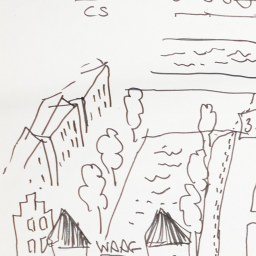 CS
3
WAAG